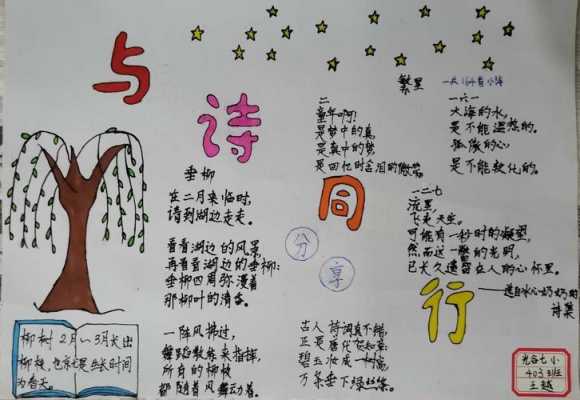 与
诗
同
行
分
享
繁星
一共164首小诗
二
童年啊!
是梦中的真,
是真中的梦,
是回忆时含泪的微笑。
一六一
大海的水,
是不能温热的。
孤傲的心
是不能软化的。
一二七
流星
飞走天空,
可能有一秒时的凝望,
然而这一瞥的光明,
已长久遗留在人的心怀里。
——选自冰心奶奶的
诗集
垂柳
在二月来临时,
请到湖边走走。
看看湖边的风景,
再看看湖边的垂柳:
垂柳四周弥漫着
那柳叶的清香。
一阵风拂过,
舞蹈教练来指挥,
所有的柳枝
都随着风舞动着。
古人诗词真不错,
正是唐代贺知章:
碧玉妆成一树高,
万条垂下绿丝绦。
柳树2月~3月长出
柳枝,
生长时间
为春天。
光谷七小
403班
王越